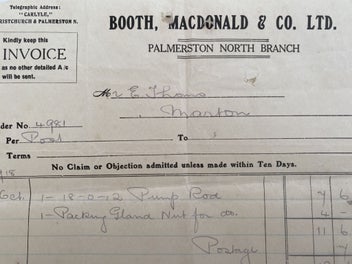 Telegraphic Address:
"CARLYLE,"
RISTCHURCH & PALMERSTON N.
BOOTH, MACDONALD & CO. LTD.
PALMERSTON NORTH BRANCH
Kindly keep this
INVOICE
as no other detailed A/c
will be sent.
Mr E Thoms
Marton
der No 4981
Per Post To
Terms
No Claim or Objection admitted unless made within Ten Days.
Oct. 1- 18-0-12 Pump Rod 7 6
1- Packing Gland Nut for do. 4 -
11 6
Postage